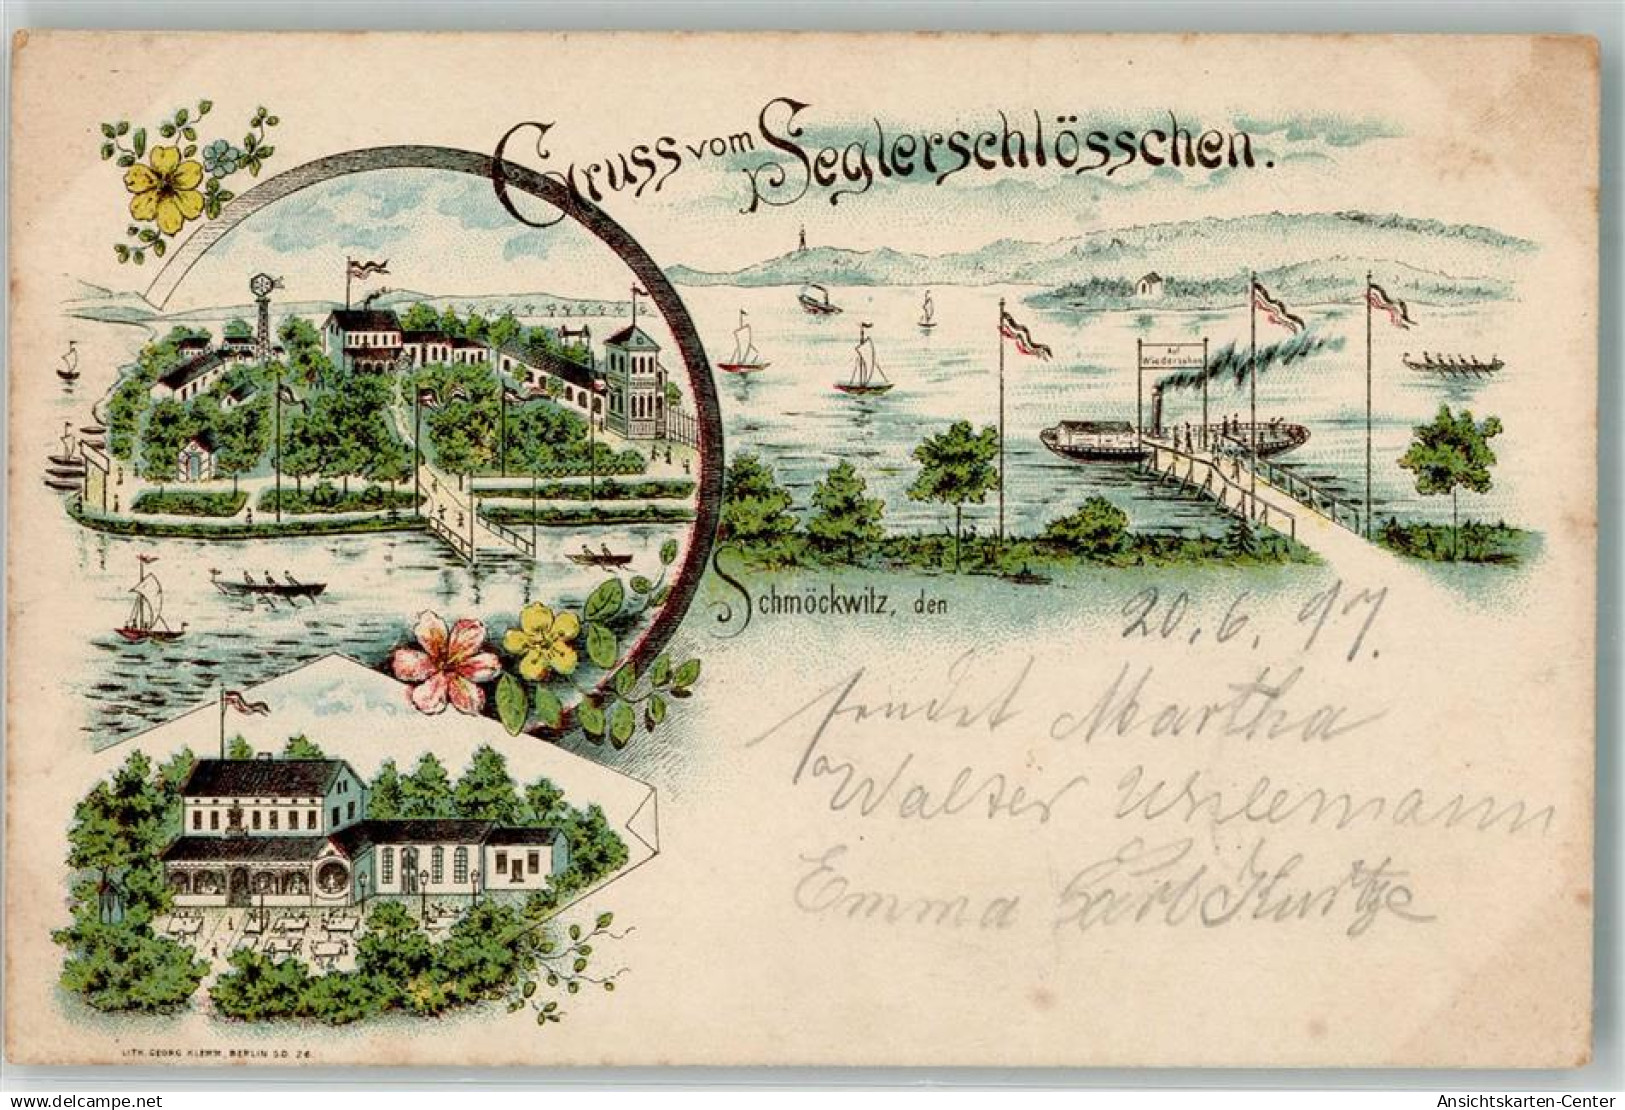 Gruss vom Seglerschlösschen.
Auf
Wiedersehen
Schmöckwitz, den 20.6.97.
sendet Martha
Walter
Emma Karl Kurtze
LITH. GEORG KLEMM, BERLIN S.O. 26
www.delcampe.net
Ansichtskarten-Center